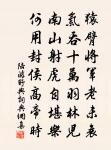 猿臂將軍老未衰
氣吞十萬羽林兒
南山射虎自堪樂
何用封侯高帝時
陸游野興詞典網集